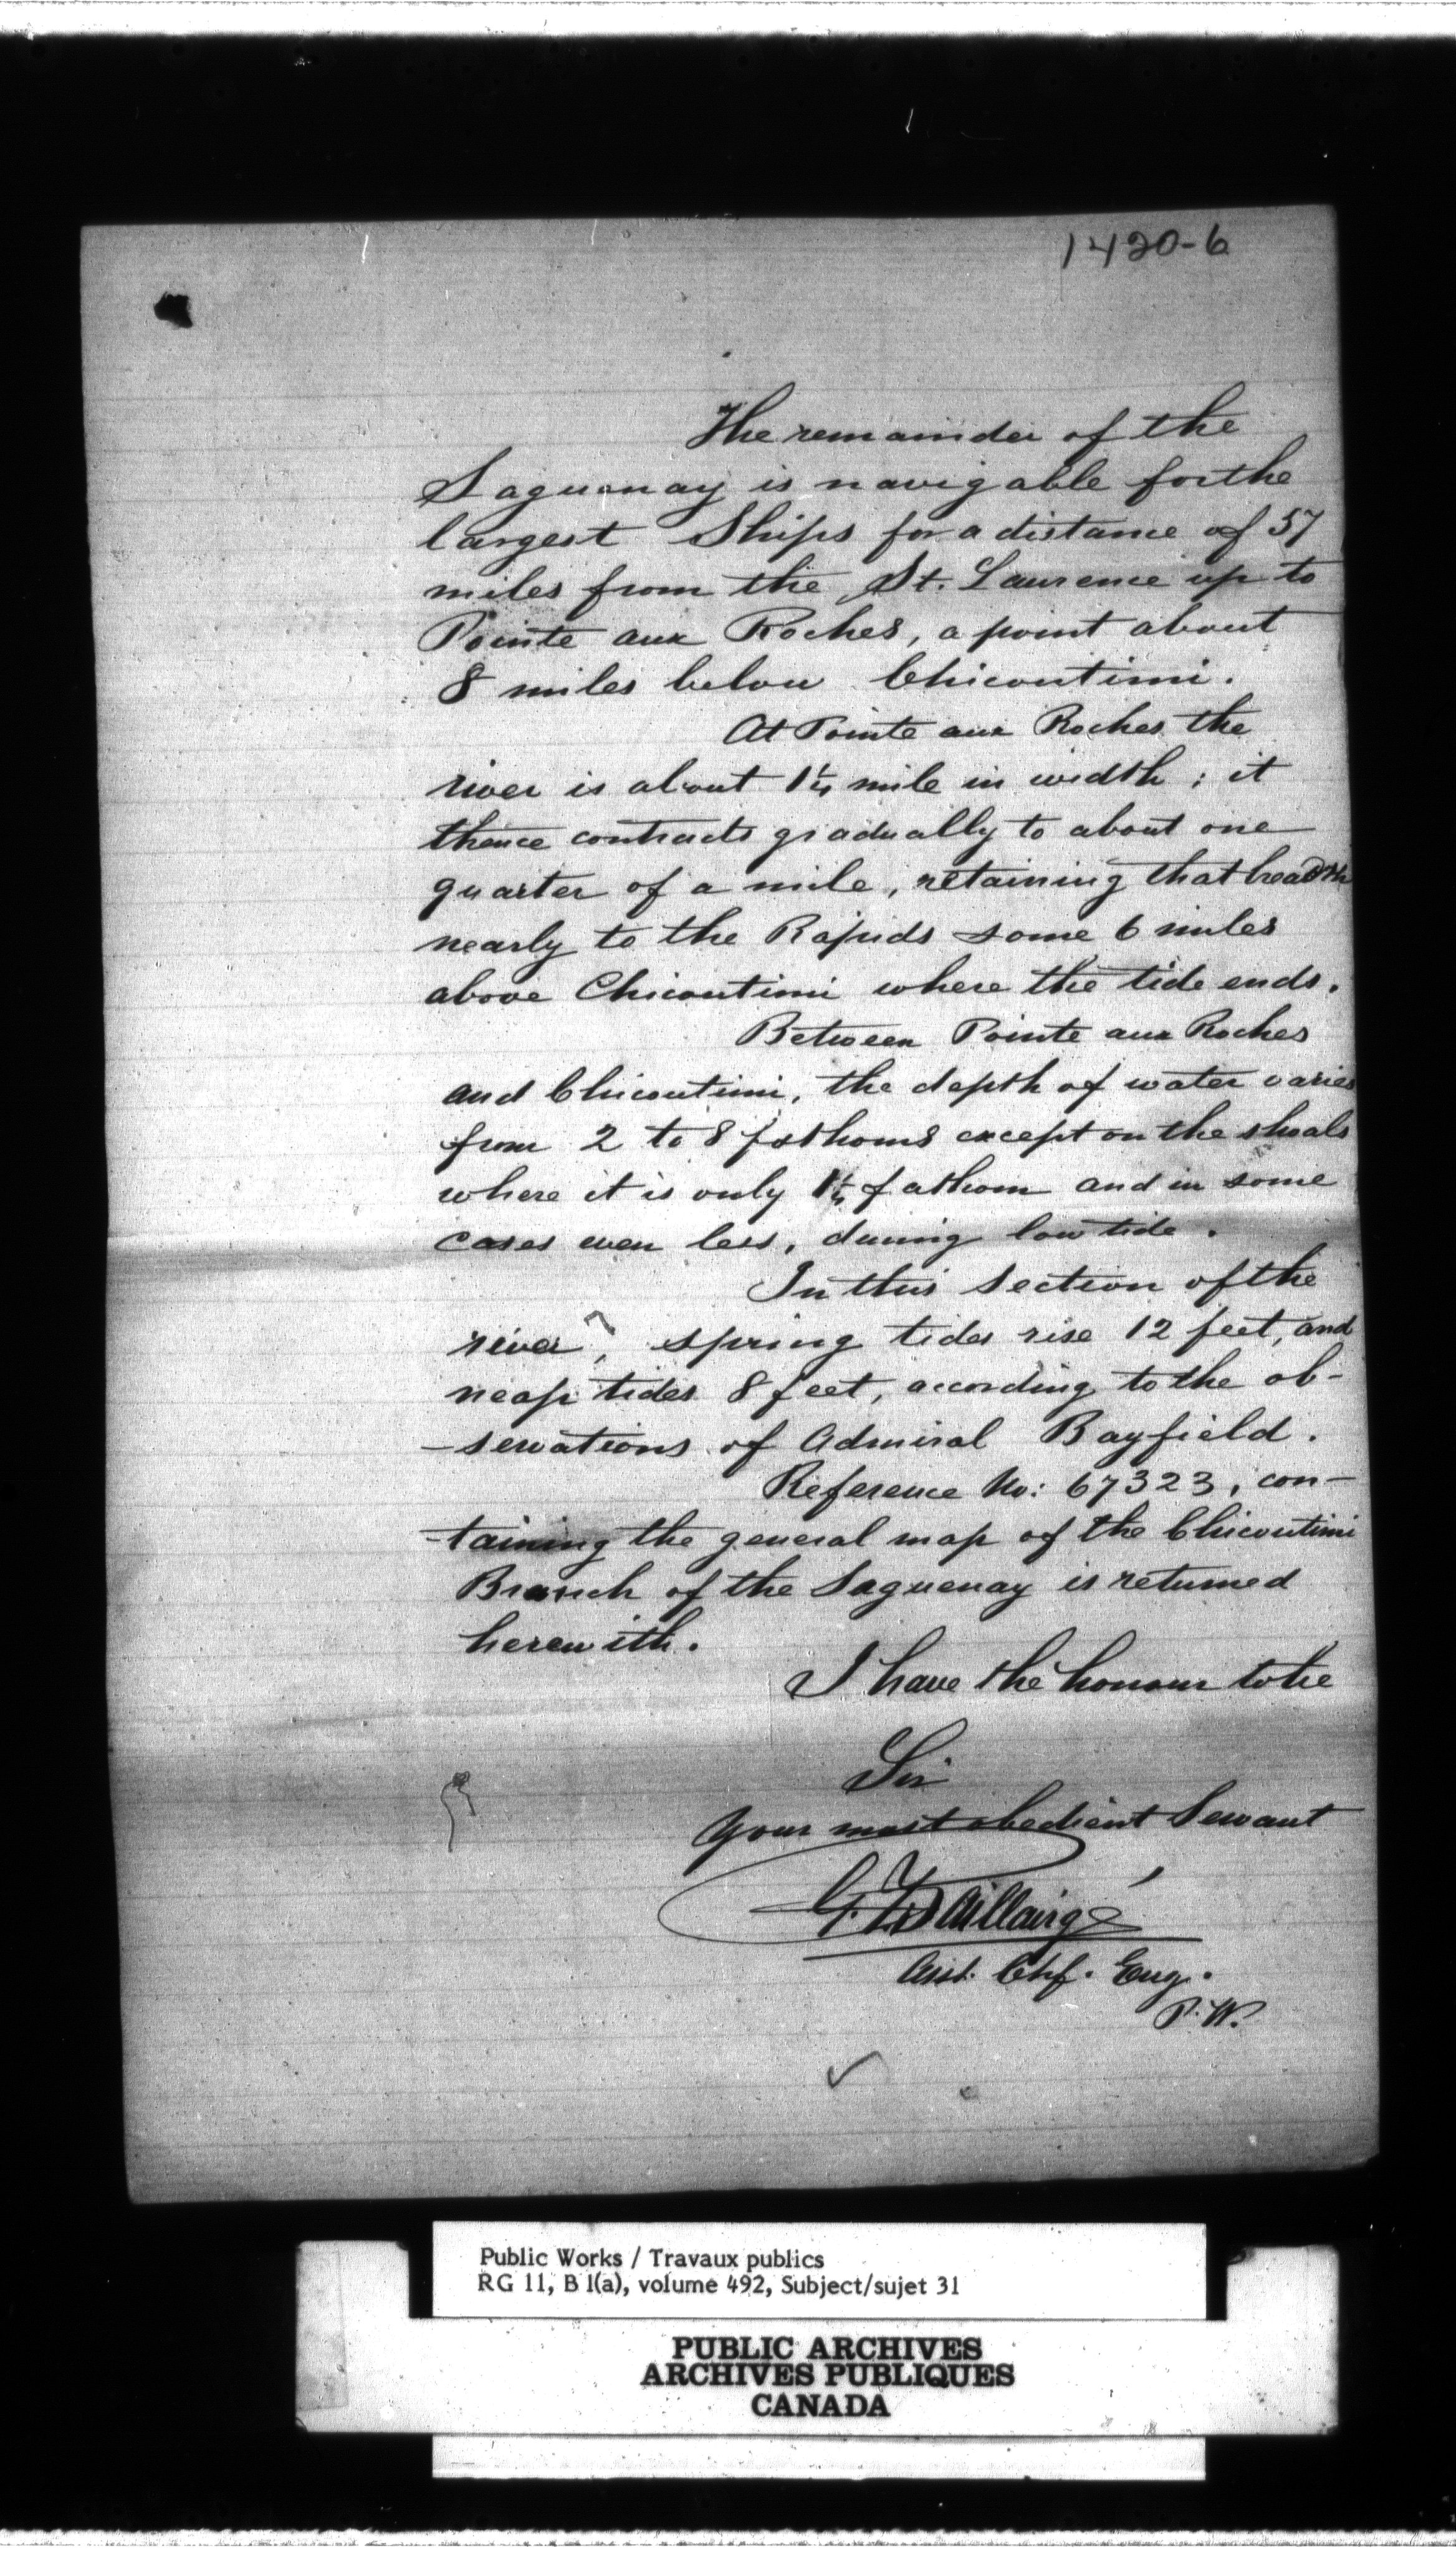 1420-6
The remainder of the
Saguenay is navigable for the
largest Ships for a distance of 57
miles from the St. Laurence up to
Pointe aux Roches, a point about
8 miles below Chicoutimi.
At Pointe aux Roches the
river is about 1¼ mile in width; it
thence contracts gradually to about one
quarter of a mile, retaining that breadth
nearly to the Rapids some 6 miles
above Chicoutimi where the tide ends.
Between Pointe aux Roches
and Chicoutimi, the depth of water varies
from 2 to 8 fathoms except on the shoals
where it is only 1¼ fathom and in some
cases even less, during low tide.
In this section of the
river, spring tides rise 12 feet, and
neap tides 8 feet, according to the ob-
-servations of Admiral Bayfield.
Reference No: 67323, con-
-taining the general map of the Chicoutimi
Branch of the Saguenay is returned
herewith.
I have the honour to be
Sir
Your most obedient Servant
G. F. Baillairgé
Asst. Chf. Eng.
P.W.
Public Works / Travaux publics
RG 11, B 1(a), volume 492, Subject/sujet 31
PUBLIC ARCHIVES
ARCHIVES PUBLIQUES
CANADA